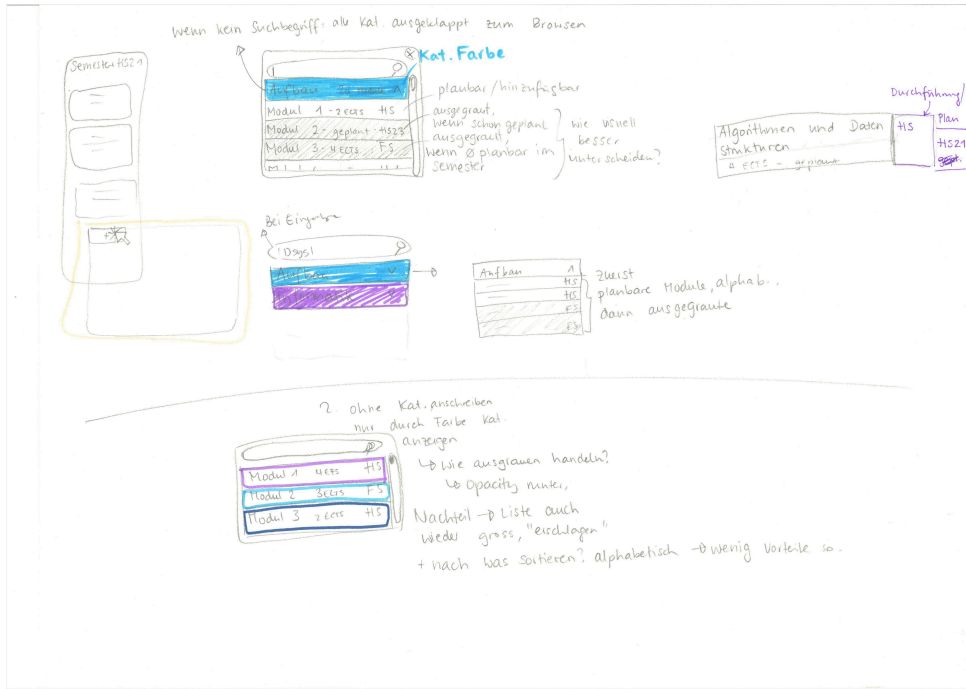 Wenn kein Suchbegriff: alle Kat. ausgeklappt zum Browsen
Semester HS21
Kat. Farbe
Aufbau
Modul 1 - 2 ECTS HS
Modul 2 - geplant - HS23
Modul 3 - 4 ECTS FS
planbar/hinzufügbar
ausgegraut,
wenn schon geplant
ausgegraut,
wenn Ø planbar im
Semester
wie visuell
besser
unterscheiden?
Durchführung/
Plan
Algorithmen und Daten
strukturen
HS
HS21
4 ECTS - geplant
gepl.
Bei Eingabe
Dsys
Aufbau
Informatik
Aufbau
HS
HS
FS
FS
zuerst
planbare Module, alphab.,
dann ausgegraute
2. ohne Kat. anschreiben
nur durch Farbe Kat.
anzeigen
Modul 1 4 ECTS HS
Modul 2 3 ECTS FS
Modul 3 2 ECTS HS
↳ wie ausgrauen handeln?
↳ Opacity runter,
Nachteil → Liste auch
wieder gross, "erschlagen"
+ nach was sortieren? alphabetisch → wenig Vorteile so.